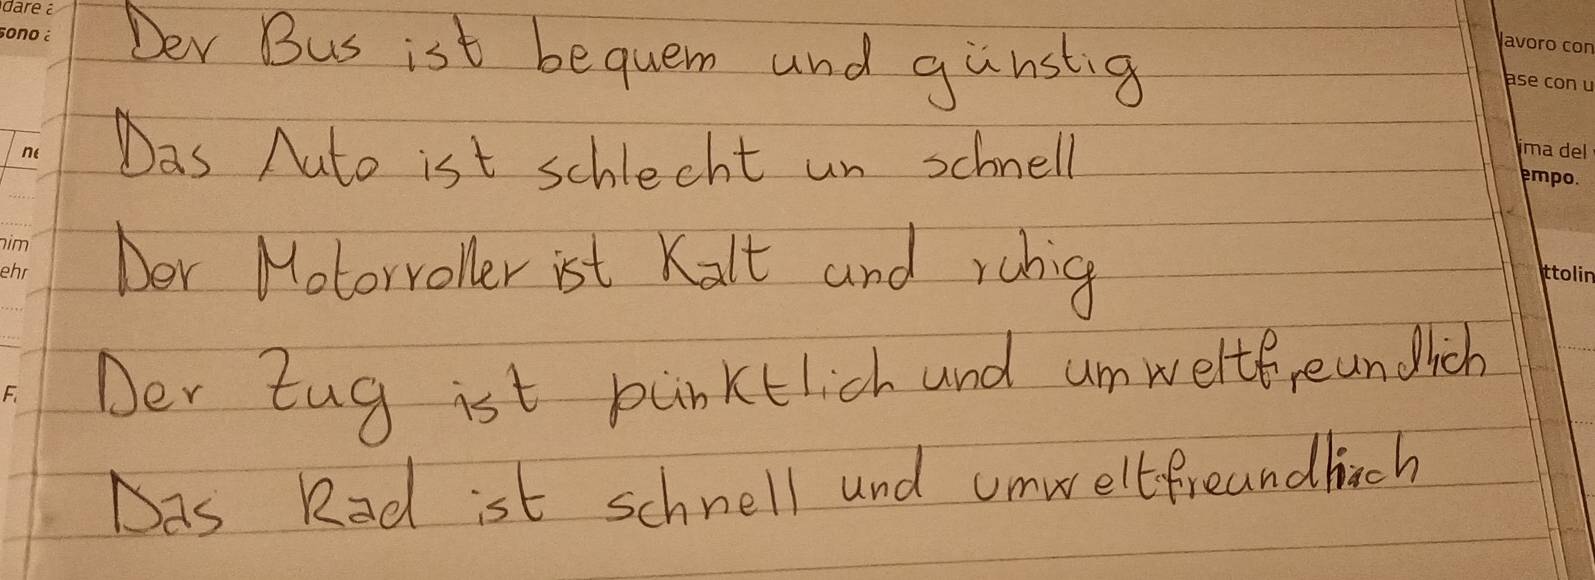 dare
sono
Der Bus ist bequem und günstig
lavoro con
ase con u
Das Auto ist schlecht un schnell
ima del
empo.
Der Motorroller ist Kalt und ruhig
nim
ehr
ttolin
Der Zug ist pünktlich und umweltfreundlich
F.
Das Rad ist schnell und umweltfreundlich